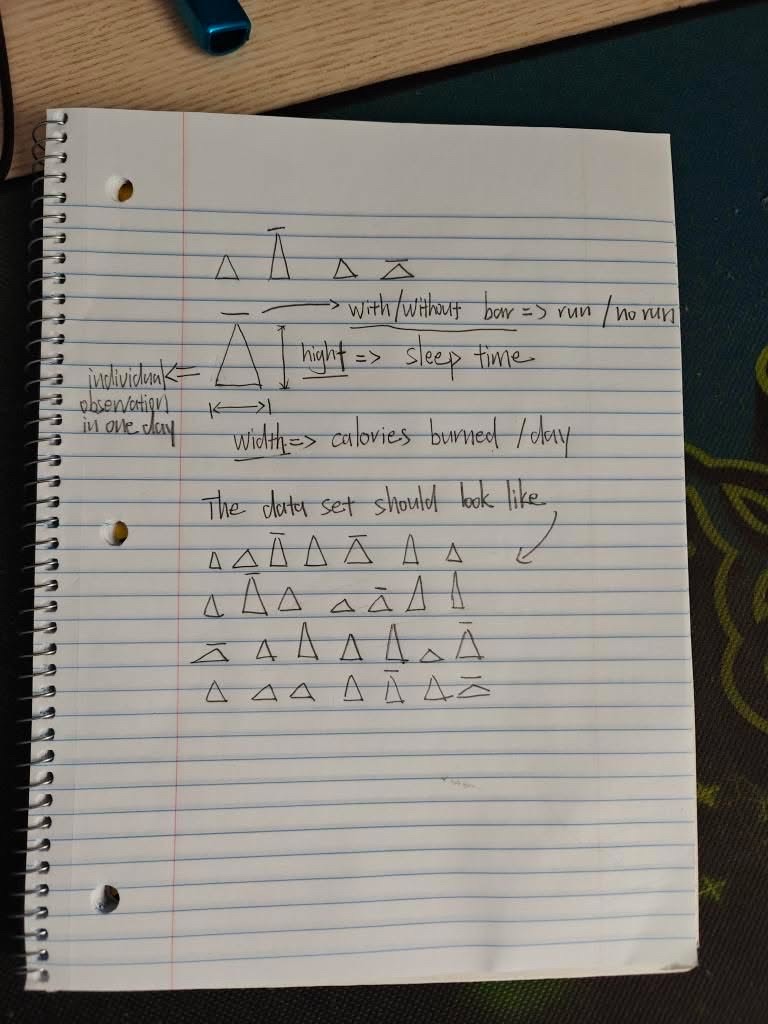 with/without bar => run / no run
hight => sleep time
individual
observation
in one day
width => calories burned / day
The data set should look like